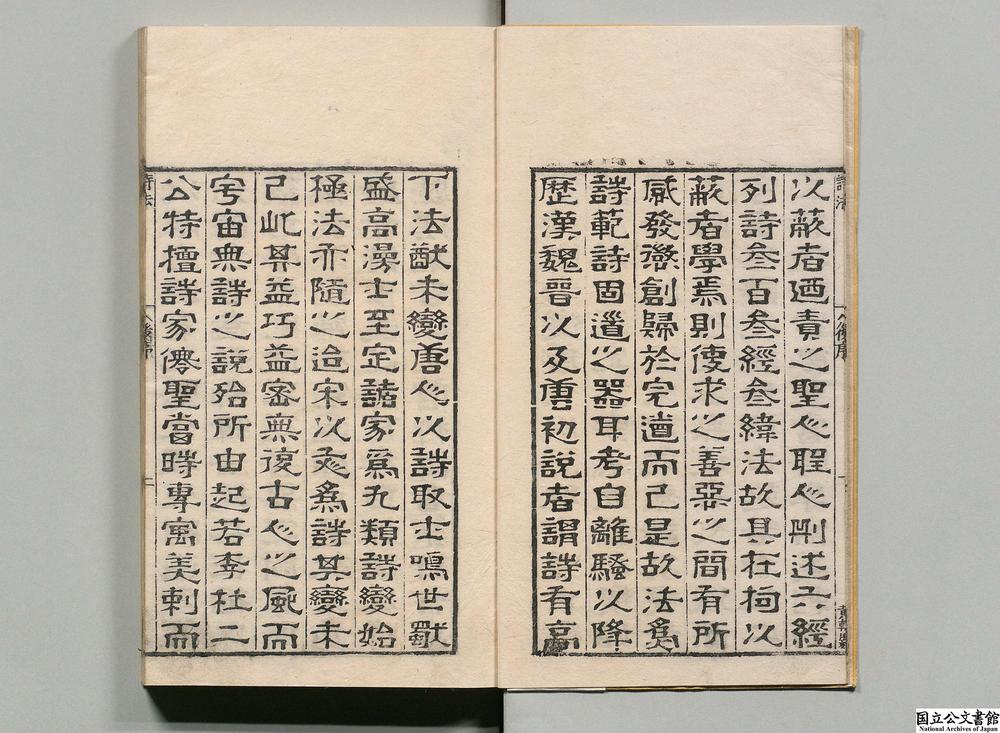 以蔽者廼責之聖人聖人刪述六經
列詩叁百叁經叁緯法故具在拘以
蔽者學焉則使求之善惡之間有所
感發懲創歸於完道而已是故法奠
詩範詩固道之器耳考自離騷以降
歷漢魏晉以及唐初說者謂詩有高
下法猷未變唐人以詩取士鳴世歟
盛高漫士至定諸家為九類詩變始
極法亦隨之迨宋以為詩其變未
已此其益巧益密無復古人之風而
宇宙無詩之說殆所由起若李杜二
公特擅詩家僊聖當時專寓美刺而
詩法
後序
詩法
後序
国立公文書館
National Archives of Japan